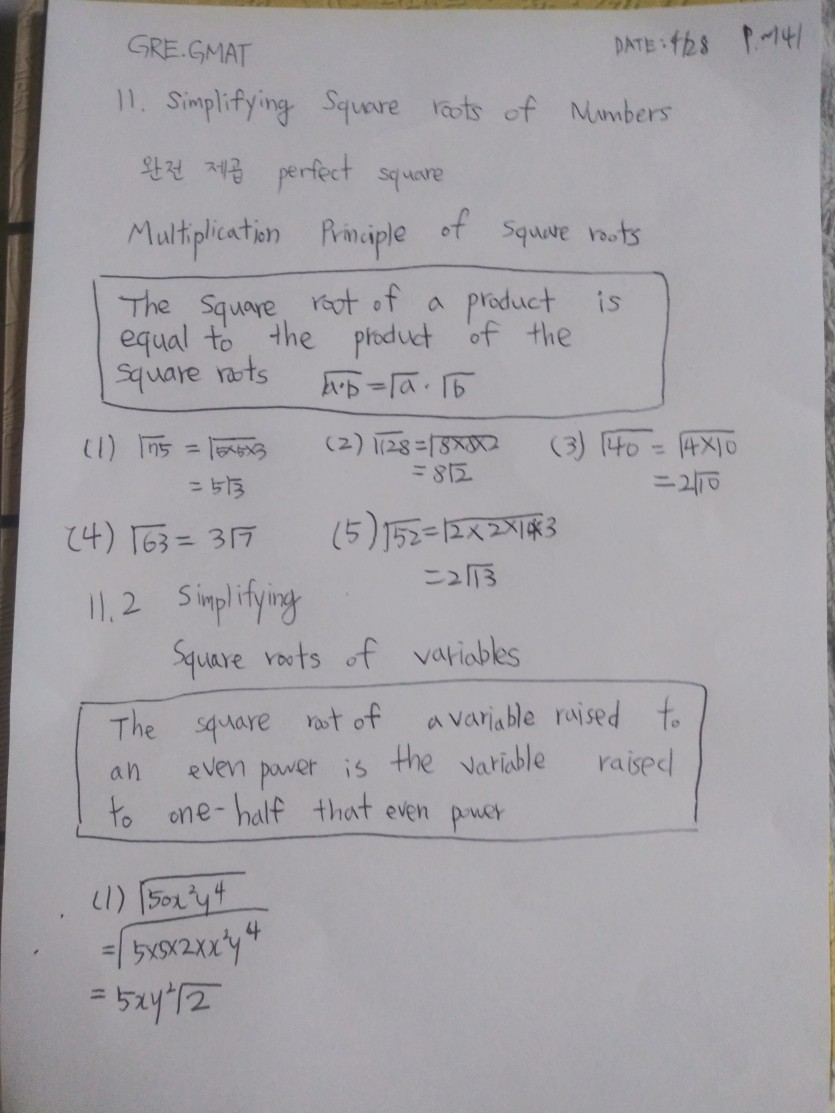 GRE.GMAT DATE: 4/28 P.~141
11. Simplifying Square roots of Numbers
완전 제곱 perfect square
Multiplication Principle of square roots
The square root of a product is
equal to the product of the
square roots √a·b = √a · √b
(1) √75 = √5×5×3 (2) √128 = √8×8×2 (3) √40 = √4×10
= 5√3 = 8√2 = 2√10
(4) √63 = 3√7 (5) √52 = √2×2×13
= 2√13
11.2 Simplifying
Square roots of variables
The square root of a variable raised to
an even power is the variable raised
to one-half that even power
(1) √50x²y⁴
= √5×5×2×x²y⁴
= 5xy²√2